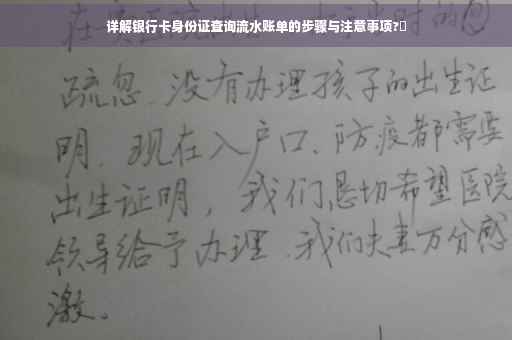 详解银行卡身份证查询流水账单的步骤与注意事项?
疏忽、没有办理孩子的出生证
明、现在入户口、防疫都需要
出生证明，我们恳切希望医院
领导给予办理、我们夫妻万分感
激。